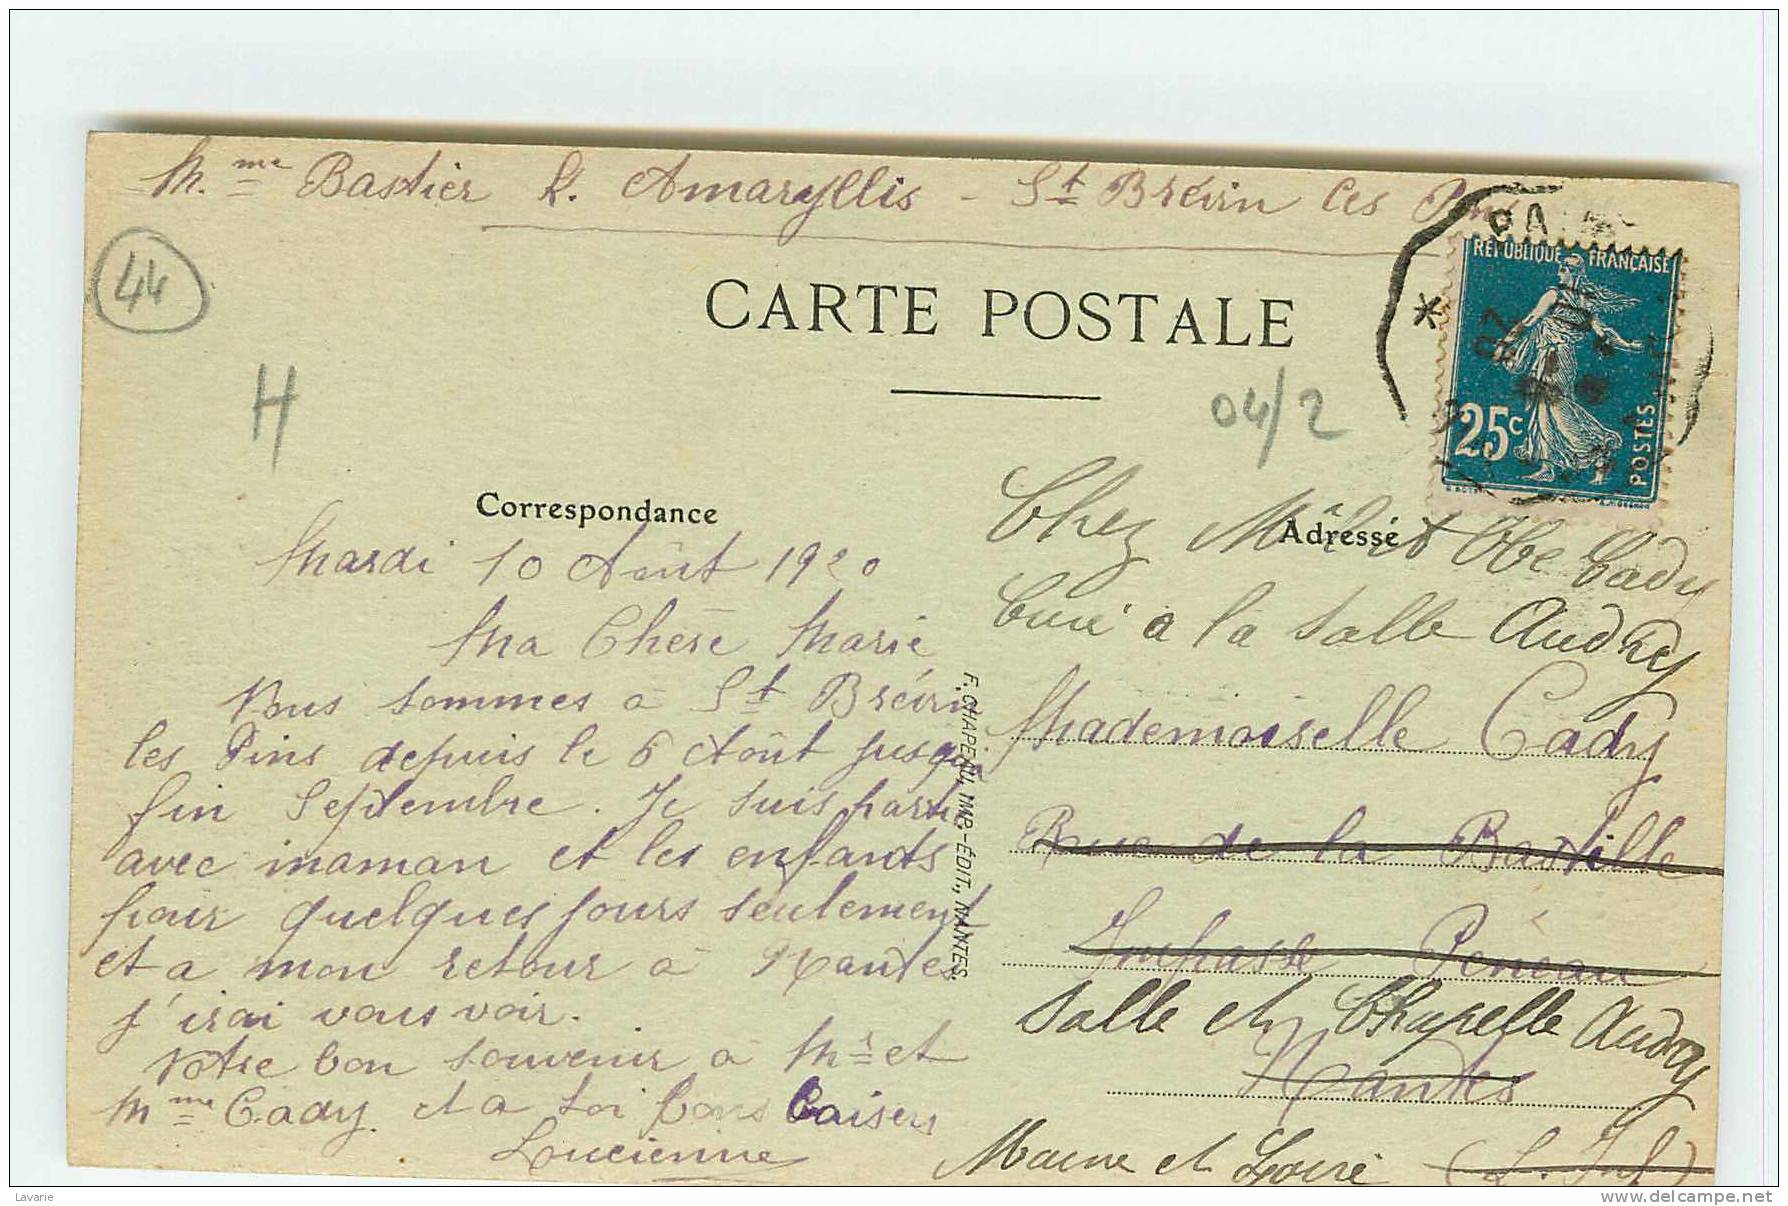 M.me Bastier R. Amaryllis - St Brévin les Pins
44
CARTE POSTALE
H
04/2
RÉPUBLIQUE FRANÇAISE
25c
POSTES
Correspondance
Adresse
Mardi 10 Août 1920
Ma Chère Marie
Nous sommes à St Brévin
les Pins depuis le 6 Août jusqu'à
fin Septembre. Je suis partie
avec maman et les enfants
pour quelques jours seulement
et a mon retour à Nantes
j'irai vous voir.
Notre bon souvenir à Mr et
Mme Cady et a toi bons baisers
Lucienne
F. CHAPEAU, IMP.-ÉDIT., NANTES.
Chez Abbé Cady
Curé a la Salle Audry
Mademoiselle Cady
Rue de la Bastille
Impasse Péneau
Salle et Chapelle Audry
Nantes
Maine et Loire (L. Inf)
Lavarie
www.delcampe.net